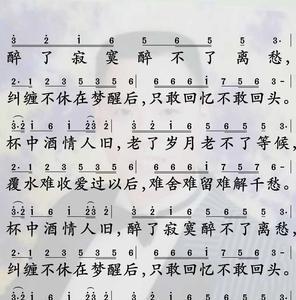 3 2 i 6 5 6 5 5 3·
醉了寂寞醉不了离愁，
2·1 2 3 5 3 5 6 6 6 6 i 7 5 6 3·
纠缠不休在梦醒后，只敢回忆不敢回头。
3·2 i 6 i 2 3 2· 3 2 i 6 i 6 5 5 3·
杯中酒情人旧，老了岁月老不了等候，
2·1 2 3 5 3 5 6 6 6 6 i 7 5 7 6·
覆水难收爱过以后，难舍难留难解千愁。
3·2 i 6 i 2 3 2· 3 2 i 6 5 6 5 5 3·
杯中酒情人旧，醉了寂寞醉不了离愁，
2·1 2 3 5 3 5 6 6 6 6 i 7 5 6 3·
纠缠不休在梦醒后，只敢回忆不敢回头。